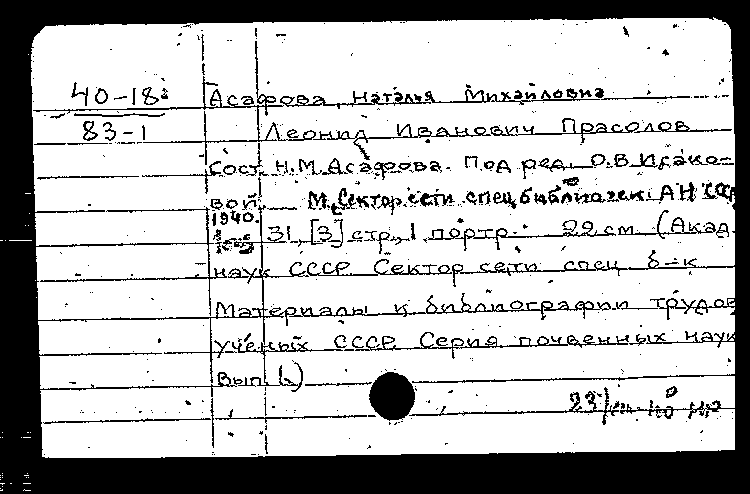 40-18 Асафова, Наталья Михайловна
83-1 Леонид Иванович Прасолов
Сост. Н.М. Асафова. Под ред. О.В. Исако-
вой. М., Сектор сети спец. библиотек АН СССР
1940.
31, [3] стр., 1 портр. 22 см (Акад.
наук СССР. Сектор сети спец. б-к
Материалы к библиографии трудов
ученых СССР. Серия почвенных наук
Вып. 1)
23/